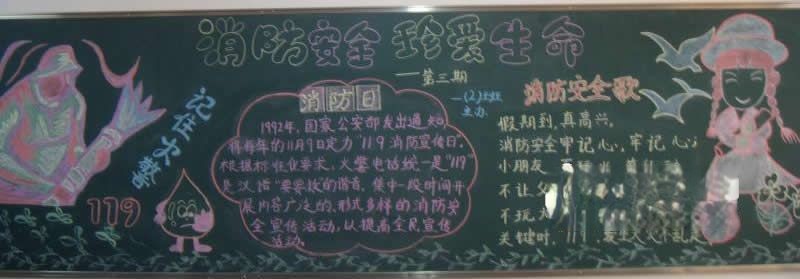 消防安全 珍爱生命
——第三期
(2)班
主办
记住火警
119
消防日
1992年，国家公安部发出通知，
将每年的11月9日定为"119消防宣传日。
根据标准化要求，火警电话统一是"119"
是汉语"要要救的谐音，集中一段时间开
展内容广泛的、形式多样的消防安
全宣传活动，以提高全民宣传
活动。
消防安全歌
假期到，真高兴，
消防安全牢记心，牢记心；
小朋友
不让父
不玩火
关键时，